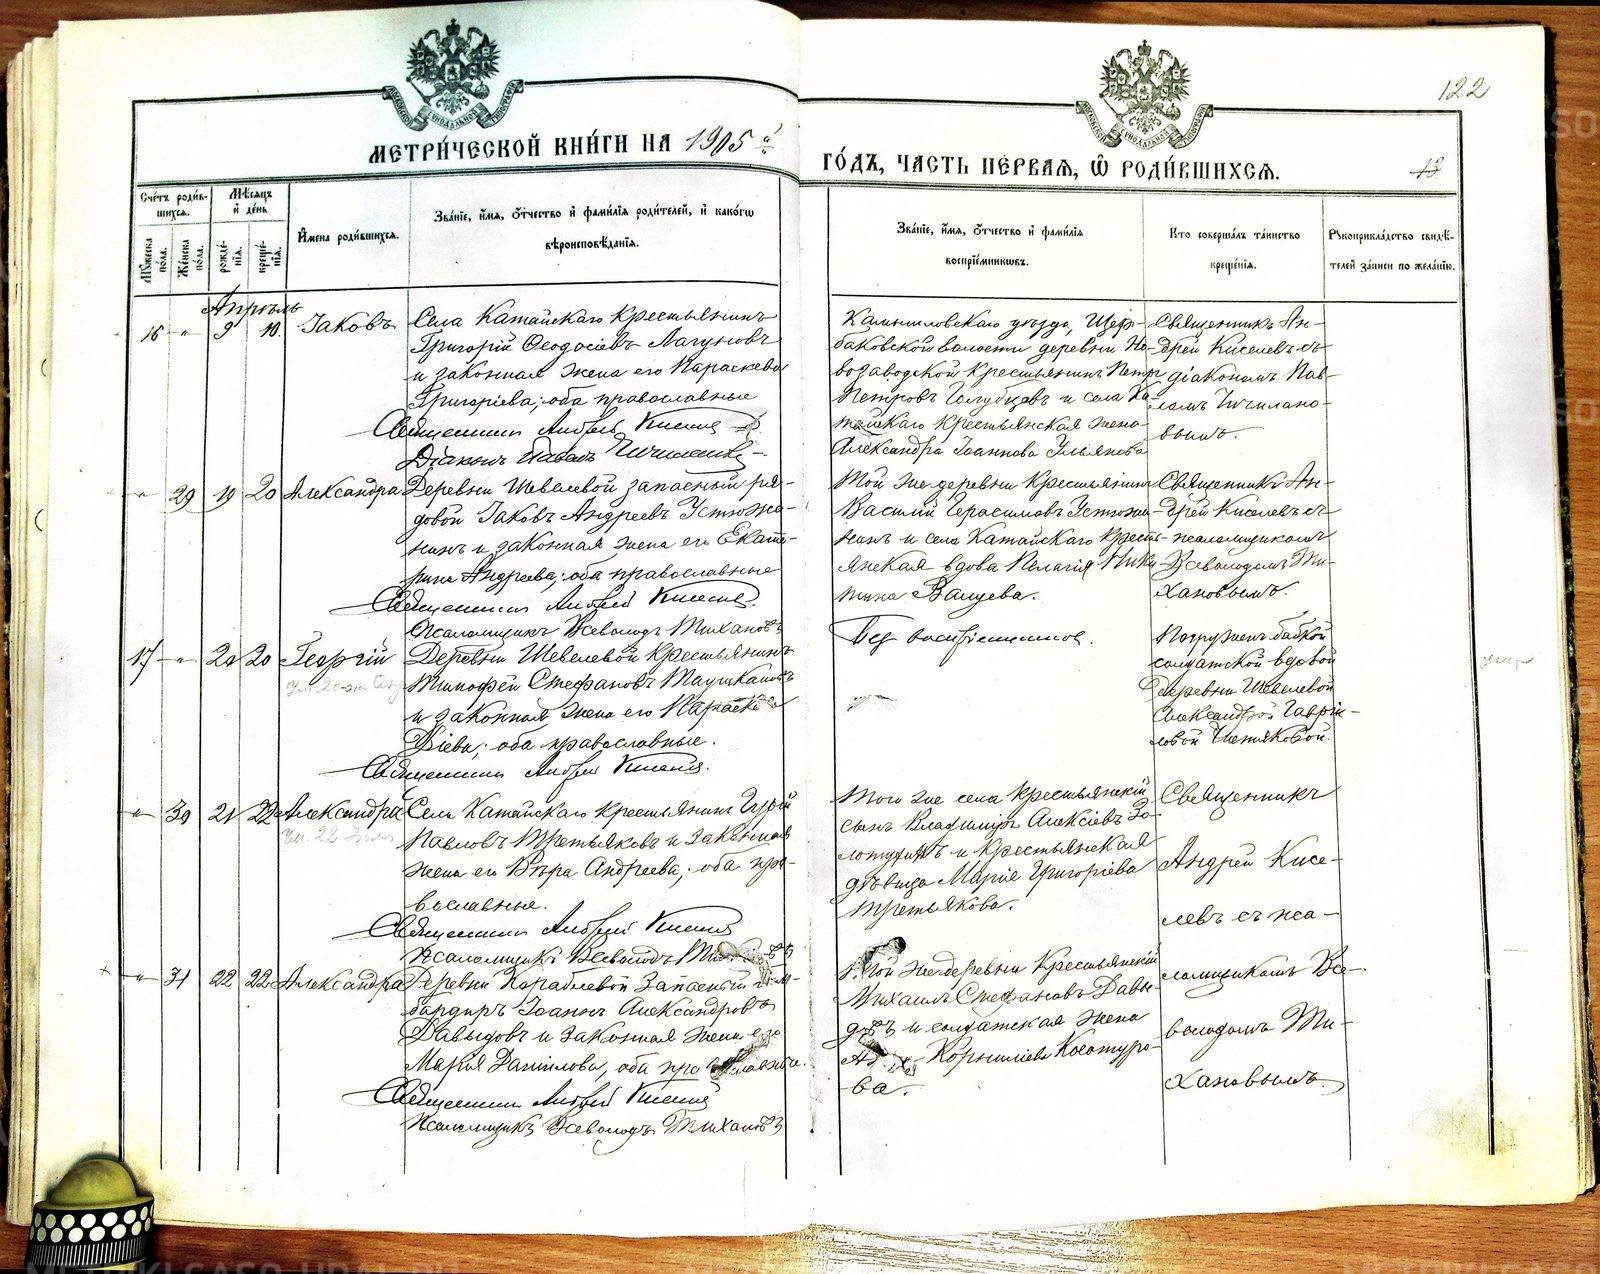 122
МЕТРИ́ЧЕСКОЙ КНИ́ГИ НА 1905 й
ГО́ДЪ, ЧАСТЬ ПЕ́РВАЯ, Ѡ РОДИ́ВШИХСЯ.
13
Сче́тъ роди́в-
шихся.
Му́жеска по́ла.
Же́нска по́ла.
Мѣ́сяцъ
и де́нь
рожде́-
нія.
креще́-
нія.
И́мена роди́вшихся.
Зва́ніе, и́мя, о́тчество и фами́лія роди́телей, и како́гѡ
вѣроисповѣ́данія.
Зва́ніе, и́мя, о́тчество и фами́лія
воспріе́мниковъ.
Кто соверша́лъ та́инство
креще́нія.
Рукоприкла́дство свидѣ́-
телей за́писи по жела́нію.
Апрѣль
16 " 9 10 Іаковъ
Села Катайскаго крестьянинъ
Григорій Ѳеодосіевъ Лагуновъ
и законная жена его Параскева
Григоріева; оба православные
Священникъ Андрей Киселев
Діаконъ Павелъ
Камышловскаго уѣзда, Щер-
баковской волости деревни Но-
возаводской крестьянинъ Петр
Петровъ Голубцовъ и села Ка-
тайскаго крестьянская жена
Александра Іоаннова Ульянова
Священникъ Ан-
дрей Киселевъ съ
діакономъ Пав-
ломъ
вымъ.
" 29 19 20 Александра
Деревни Шевелевой запасный ря-
довой Іаковъ Андреевъ Устюжа-
нинъ и законная жена его Екате-
рина Андреева; оба православные
Священникъ Андрей Киселев.
Псаломщикъ Всеволодъ Тихановъ
Той же деревни крестьянинъ
Василій Герасимовъ Устюжа-
нинъ и села Катайскаго кресть-
янская вдова Пелагія Ники-
тина
Священникъ Ан-
дрей Киселевъ съ
псаломщикомъ
Всеволодомъ Ти-
хановымъ.
17 " 20 20 Георгій
Деревни Шевелевой крестьянинъ
Тимофей Стефановъ Таушкановъ
и законная жена его Параске
віева; оба православные.
Священникъ Андрей Киселев.
Без воспріемников.
Погруженъ бабкой
солдатской вдовой
деревни Шевелевой
Александрой Гаврі-
ловой
" 30 21 22 Александра
Ум. 22 Іюля
Села Катайскаго крестьянинъ Гурій
Павловъ Третьяковъ и законная
жена его Вѣра Андреева; оба пра-
вославные.
Священникъ Андрей Киселев
Псаломщикъ Всеволодъ
Того же села крестьянскій
сынъ Владиміръ Алексіевъ Зо-
лотухинъ и крестьянская
дѣвица Марія Григоріева
Третьякова.
Священникъ
Андрей Кисе-
левъ съ пса-
" 31 22 22 Александра
Деревни Кораблевой запасный бом-
бардиръ Іоаннъ Александровъ
Давыдовъ и законная жена его
Марія Даніилова, оба православные.
Священникъ Андрей Киселев
Псаломщикъ Всеволодъ Тихановъ
Той же деревни крестьянскій
Михаилъ Стефановъ Давы-
довъ и солдатская жена
Корниліева Косоту­ро-
ва.
ломщикомъ Все-
володомъ Ти-
хановымъ.